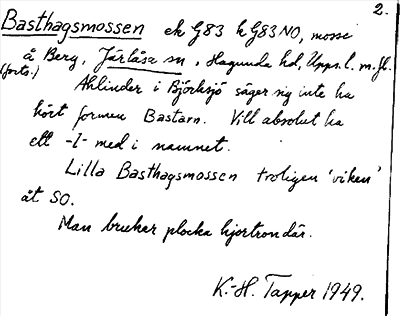 2.
Basthagsmossen ek G83 k G83NO, mosse
å Berg. Järlåsa sn, Hagunda hd, Upps.l. m.fl.
(forts.)
Ahlinder i Björksjö säger sig inte ha
hört formen Bastarn. Vill absolut ha
ett -l- med i namnet.
Lilla Basthagsmossen troligen 'viken'
åt SO.
Man brukar plocka hjortron där.
K.-H. Tapper 1949.